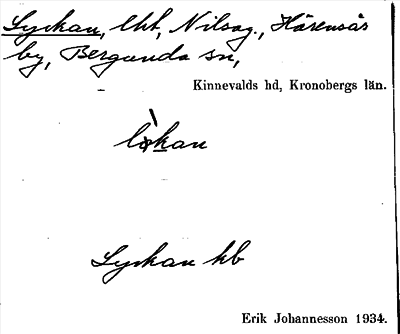 Lyckan, lht, Nilsag., Härensås
by, Bergunda sn,
Kinnevalds hd, Kronobergs län.
Lyckan hb
Erik Johannesson 1934.